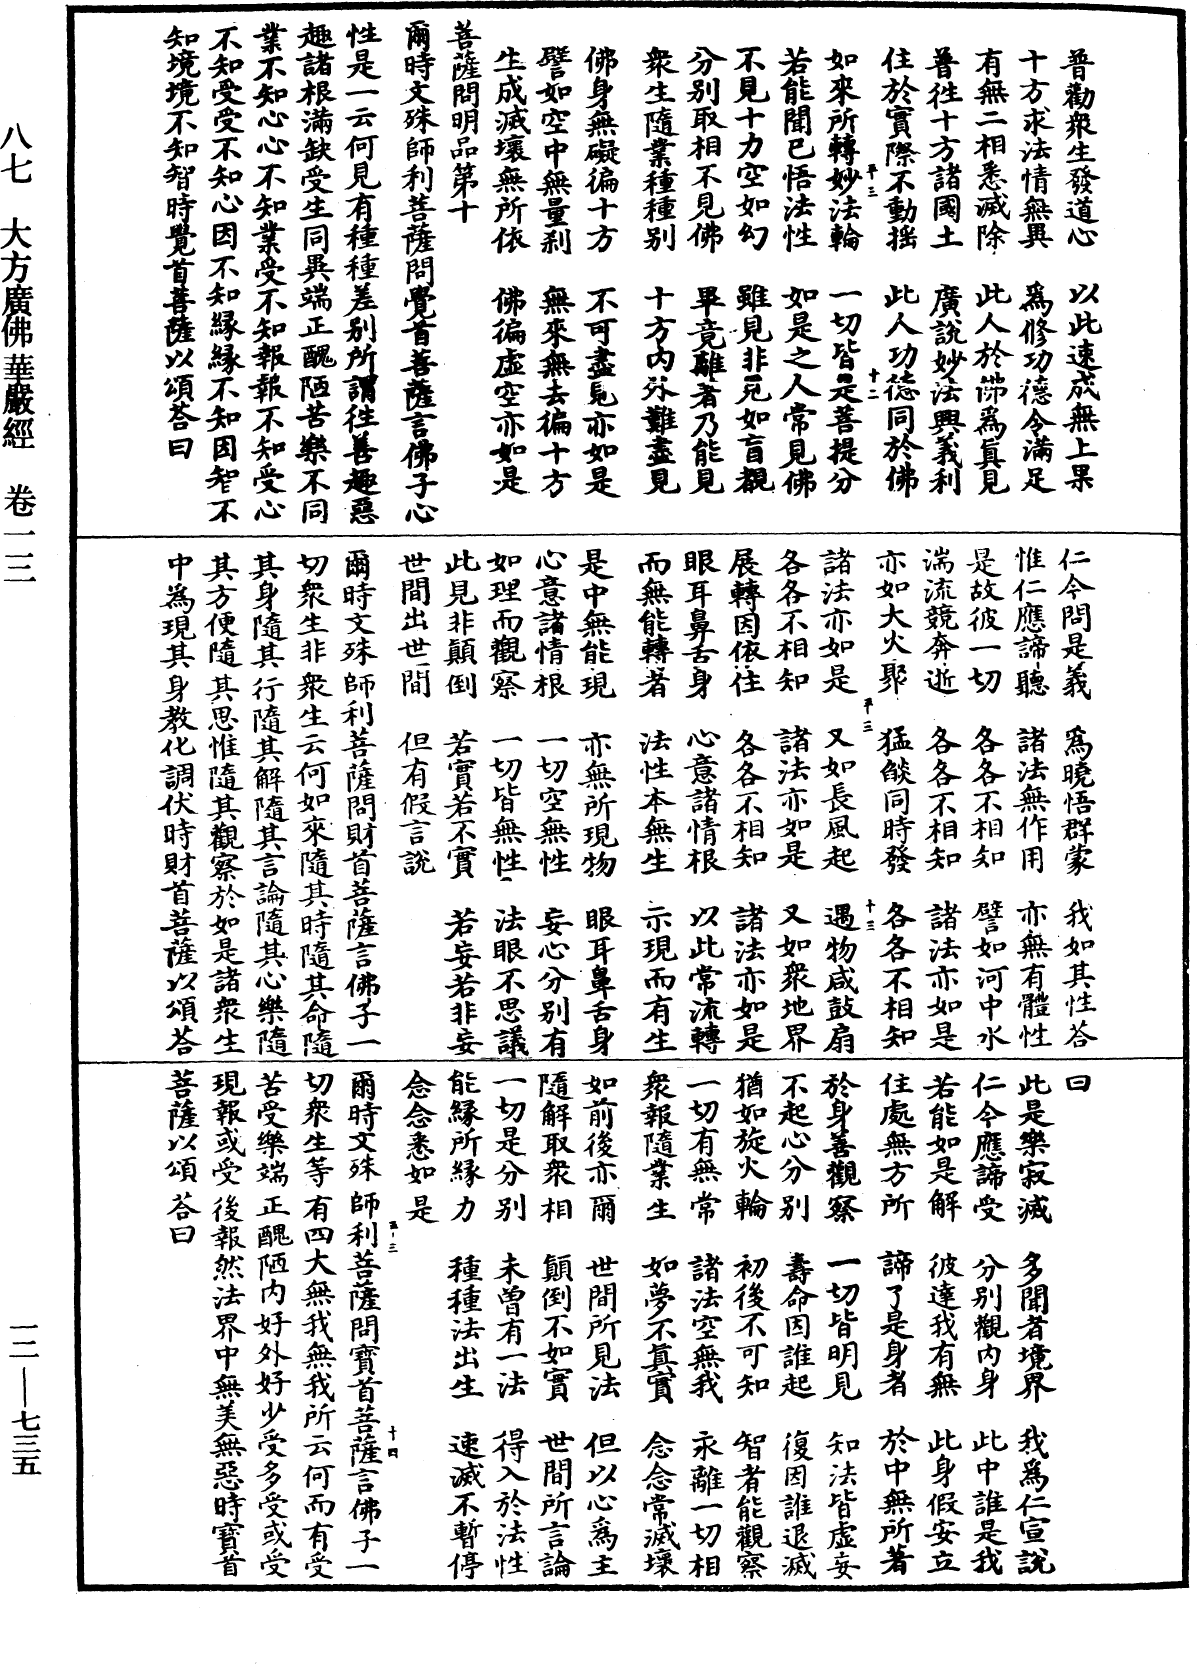 普勸衆生發道心　以此速成無上果
十方求法情無異　爲修功德令滿足
有無二相悉滅除　此人於佛爲眞見
普徃十方諸國土　廣說妙法興義利
住於實際不動揺　此人功德同於佛
如來所轉妙法輪　一切皆是菩提分
若能聞已悟法性　如是之人常見佛
不見十力空如幻　雖見非見如盲覩
分別取相不見佛　畢竟離著乃能見
衆生隨業種種別　十方內外難盡見
佛身無礙徧十方　不可盡見亦如是
譬如空中無量刹　無來無去徧十方
生成滅壞無所依　佛徧虛空亦如是
菩薩問明品第十
爾時文殊師利菩薩問覺首菩薩言佛子心
性是一云何見有種種差别所謂徃善趣惡
趣諸根滿缺受生同異端正醜陋苦樂不同
業不知心心不知業受不知報報不知受心
不知受受不知心因不知緣緣不知因智不
知境境不知智時覺首菩薩以頌荅曰
仁今問是義　爲曉悟群蒙　我如其性荅
惟仁應諦聽　諸法無作用　亦無有體性
是故彼一切　各各不相知　譬如河中水
湍流競奔逝　各各不相知　諸法亦如是
亦如大火聚　猛燄同時發　各各不相知
諸法亦如是　又如長風起　遇物咸鼓扇
各各不相知　諸法亦如是　又如衆地界
展轉因依住　各各不相知　諸法亦如是
眼耳鼻舌身　心意諸情根　以此常流轉
而無能轉者　法性本無生　示現而有生
是中無能現　亦無所現物　眼耳鼻舌身
心意諸情根　一切空無性　妄心分別有
如理而觀察　一切皆無性　法眼不思議
此見非顛倒　若實若不實　若妄若非妄
世間出世間　但有假言說
爾時文殊師利菩薩問財首菩薩言佛子一
切衆生非衆生云何如來隨其時隨其命隨
其身隨其行隨其解隨其言論隨其心樂隨
其方便隨其思惟隨其觀察於如是諸衆生
中為現其身教化調伏時財首菩薩以頌荅
曰
此是樂寂滅　多聞者境界　我爲仁宣說
仁今應諦受　分別觀內身　此中誰是我
若能如是解　彼達我有無　此身假安立
住處無方所　諦了是身者　於中無所著
於身善觀察　一切皆明見　知法皆虛妄
不起心分別　壽命因誰起　復因誰退滅
猶如旋火輪　初後不可知　智者能觀察
一切有無常　諸法空無我　永離一切相
衆報隨業生　如夢不眞實　念念常滅壞
如前後亦爾　世間所見法　但以心爲主
隨解取衆相　顛倒不如實　世間所言論
一切是分別　未曾有一法　得入於法性
能緣所緣力　種種法出生　速滅不暫停
念念悉如是
爾時文殊師利菩薩問寶首菩薩言佛子一
切衆生等有四大無我無我所云何而有受
苦受樂端正醜陋內好外好少受多受或受
現報或受後報然法界中無美無惡時寶首
菩薩以頌荅曰
平三
十二
平三
十三
平三
十四
八七　大方廣佛華嚴經　卷一三
一二—七三五